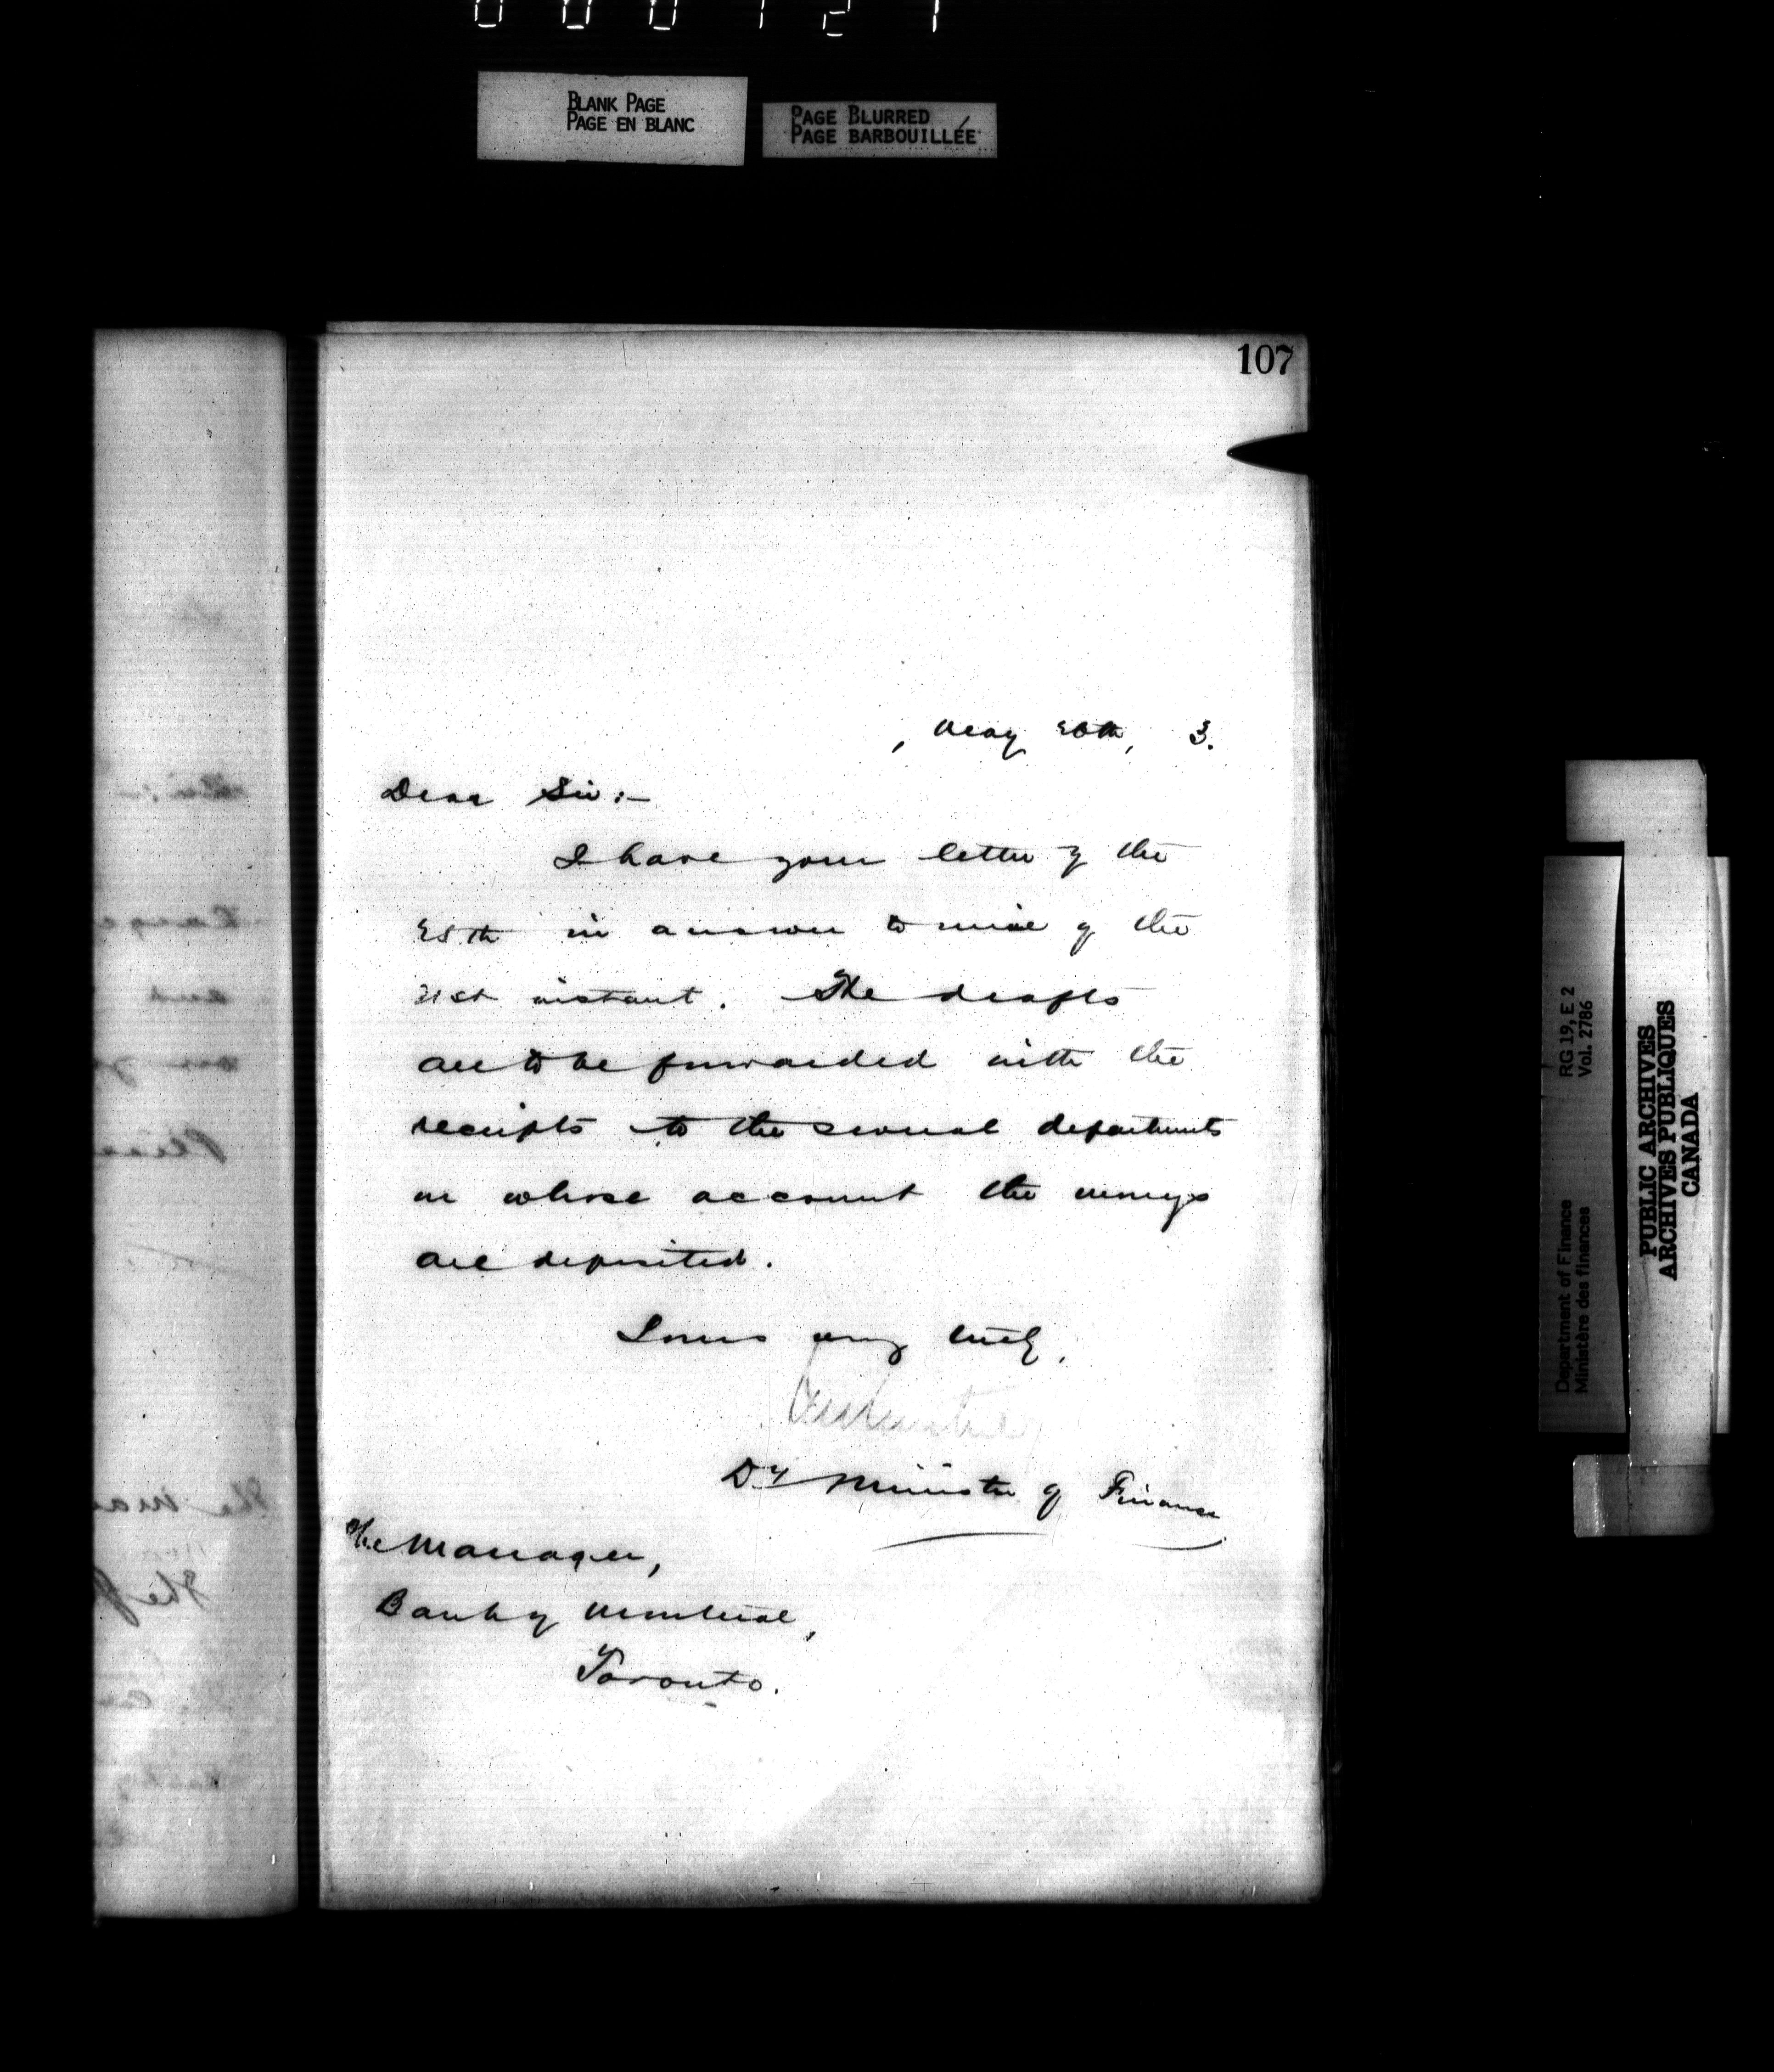 BLANK PAGE
PAGE EN BLANC
PAGE BLURRED
PAGE BARBOUILLÉE
107
, May 26th, 3.
Dear Sir :-
I have your letter of the
25th in answer to mine of the
21st instant. The drafts
are to be forwarded with the
receipts to the several departments
on whose account the moneys
are deposited.
Yours very truly,
Dy Minister of Finance
The Manager,
Bank of Montreal,
Toronto.
Department of Finance RG 19, E 2
Ministère des finances Vol. 2786
PUBLIC ARCHIVES
ARCHIVES PUBLIQUES
CANADA